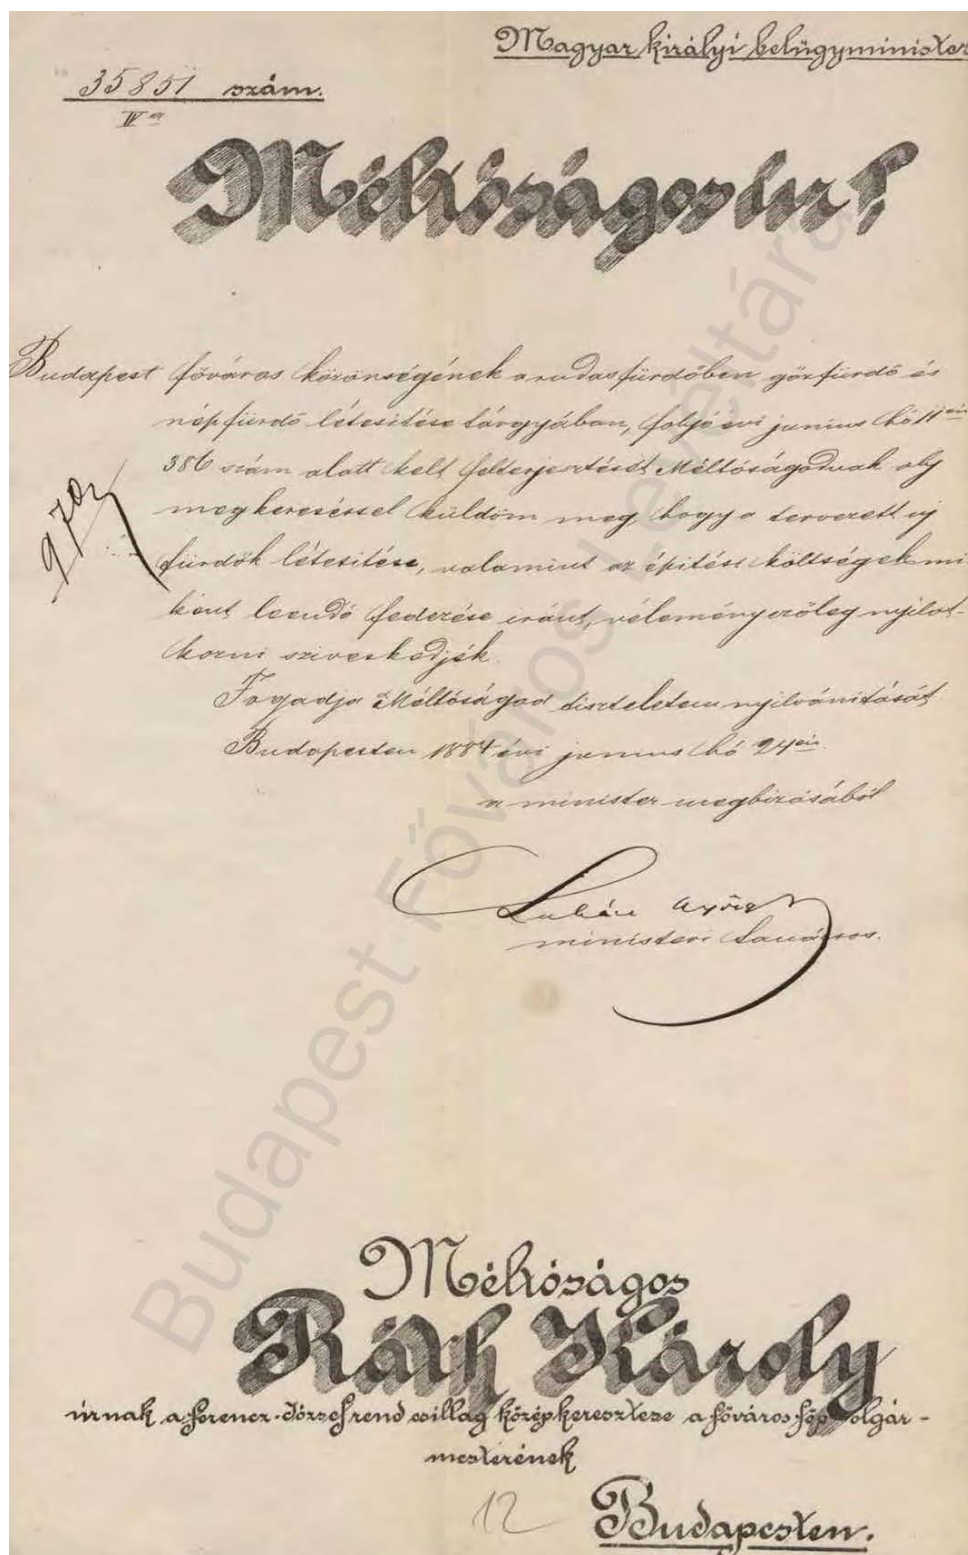 Magyar királyi belügyminister
35851 szám.
IV a
Méltóságos úr!
Budapest főváros közönségének a rudasfürdőben gőzfürdő és
népfürdő létesitése tárgyában, foljó évi junius hó 11én
386 szám alatt kelt felterjesztését Méltóságodnak oly
megkereséssel küldöm meg, hogy a tervezett uj
fürdők létesitése, valamint az épitési költségek mi
ként leendő fedezése iránt, véleményezőleg nyilat-
kozni sziveskedjék.
Fogadja Méltóságod tiszteletem nyilvánitását
Budapesten 1884 évi junius hó 24én.
a minister megbizásából
Lukács György
ministeri tanácsos.
970
Méltóságos
Ráth Károly
úrnak a Ferencz-József rend csillag középkeresztese a főváros főpolgár-
mesterének
12
Budapesten.
Budapest Főváros Levéltára